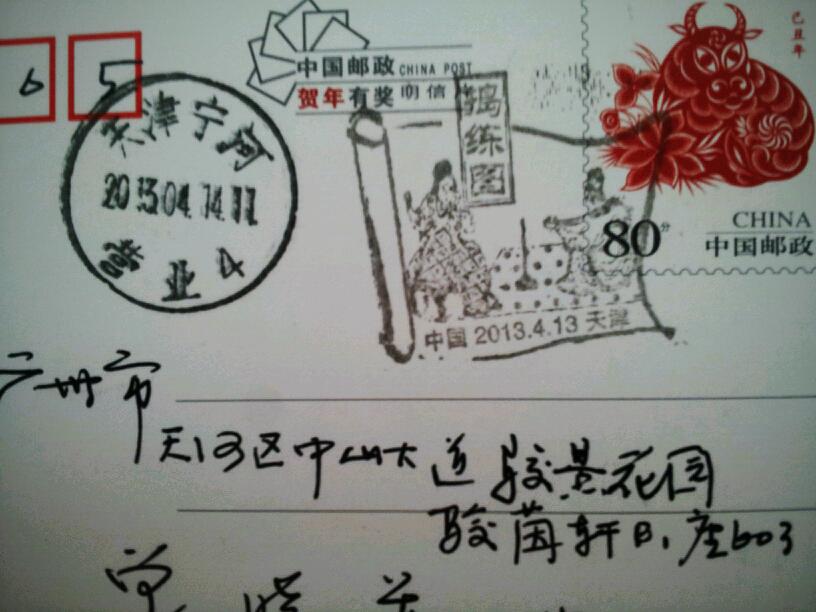 6 5
中国邮政 CHINA POST
贺年有奖明信
己丑年
天津宁河
2013.04.14.11
营业4
捣练图
中国 2013.4.13 天津
80分
CHINA
中国邮政
广州市
天河区中山大道骏景花园
骏茵轩B1座603